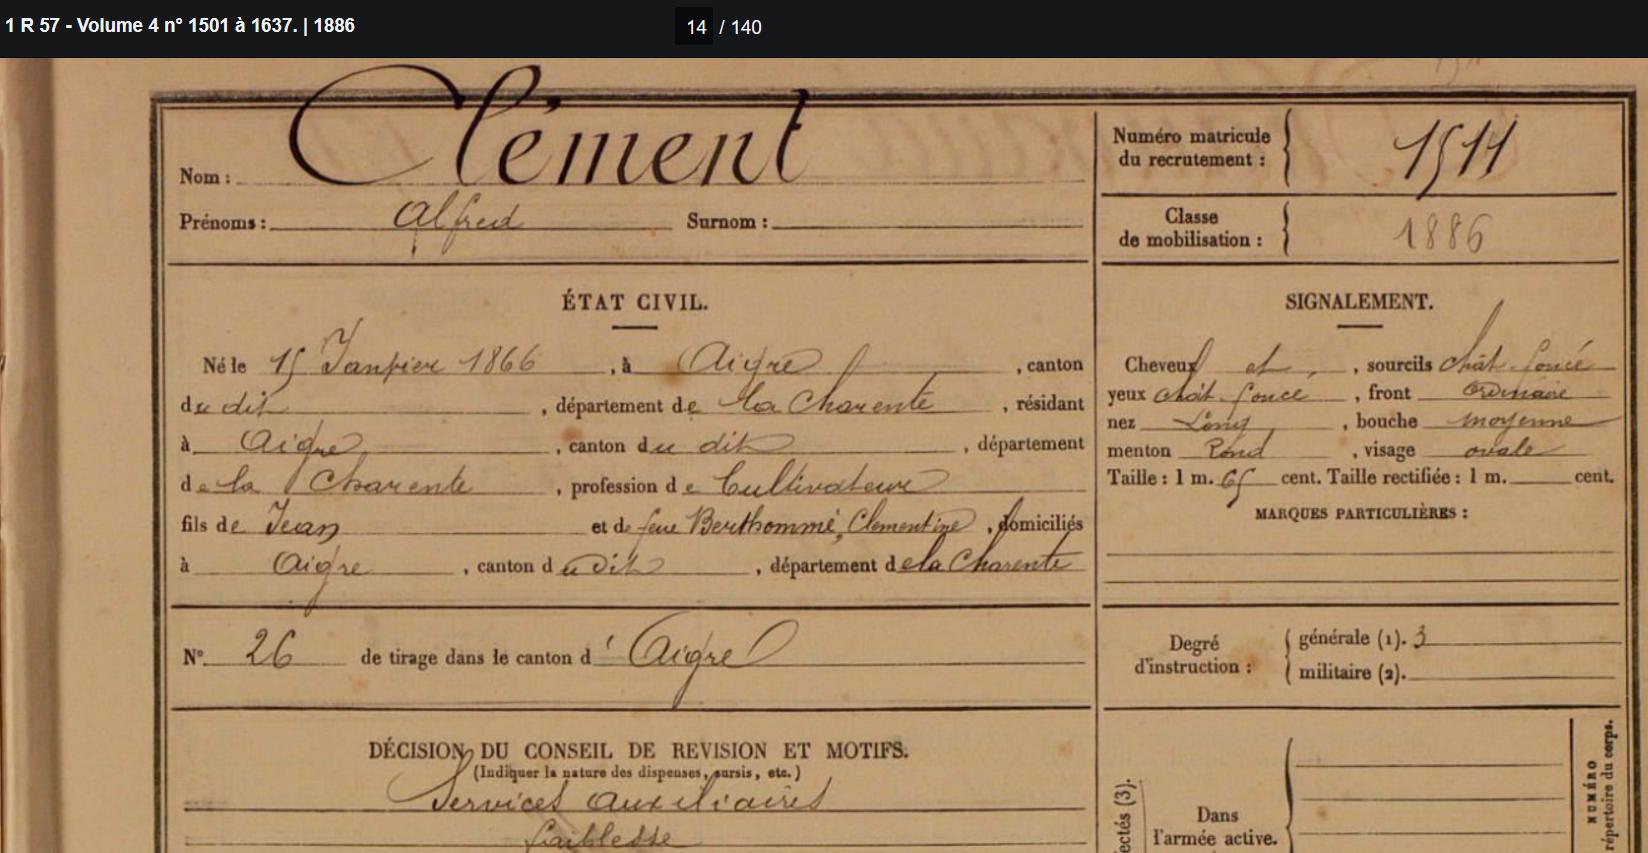 1 R 57 - Volume 4 n° 1501 à 1637. | 1886
14 / 140
Nom : Clément
Prénoms : Alfred Surnom :
Numéro matricule
du recrutement : 1511
Classe
de mobilisation : 1886
ÉTAT CIVIL.
Né le 15 Janvier 1866, à Aigre, canton
du dit, département de la Charente, résidant
à Aigre, canton du dit, département
de la Charente, profession de Cultivateur
fils de Jean et de feue Berthommé, Clementine, domiciliés
à Aigre, canton du dit, département de la Charente
SIGNALEMENT.
Cheveux et, sourcils chât. foncé
yeux chât. foncé, front Ordinaire
nez Long, bouche moyenne
menton Rond, visage ovale
Taille : 1 m. 65 cent. Taille rectifiée : 1 m. cent.
MARQUES PARTICULIÈRES :
N° 26 de tirage dans le canton d'Aigre
Degré
d'instruction :
générale (1). 3
militaire (2).
DÉCISION DU CONSEIL DE REVISION ET MOTIFS.
(Indiquer la nature des dispenses, sursis, etc.)
Services Auxiliaires
faiblesse
ectés (3).
Dans
l'armée active.
NUMÉRO
répertoire du corps.